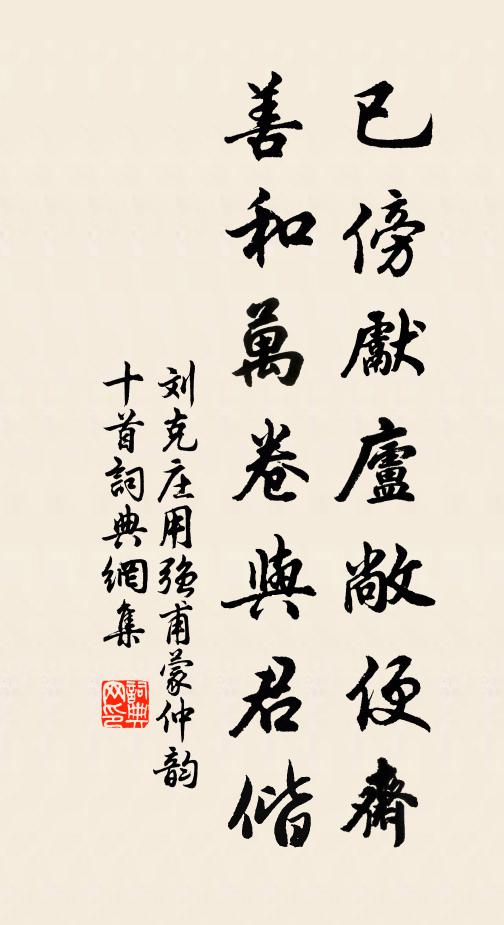 已傍獻廬敞便齋
善和萬卷與君偕
刘克庄用強甫蒙仲韵
十首詞典網集
詞典
网印